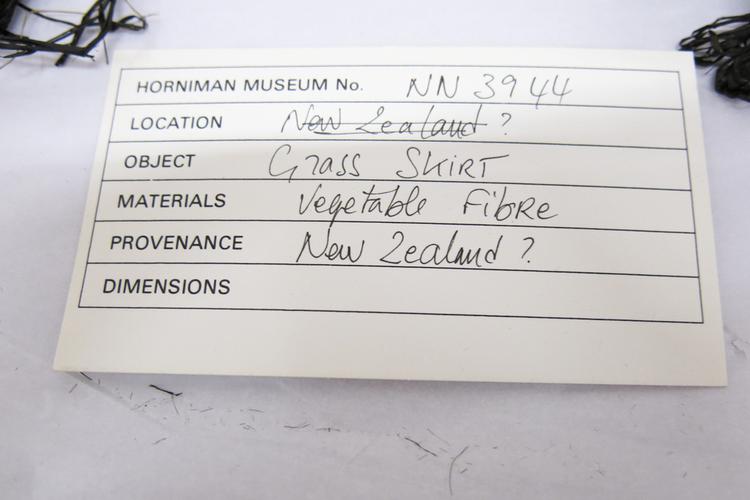 HORNIMAN MUSEUM No. NN 3944
LOCATION New Zealand ?
OBJECT Grass SKIRT
MATERIALS Vegetable FibRe
PROVENANCE New Zealand ?
DIMENSIONS